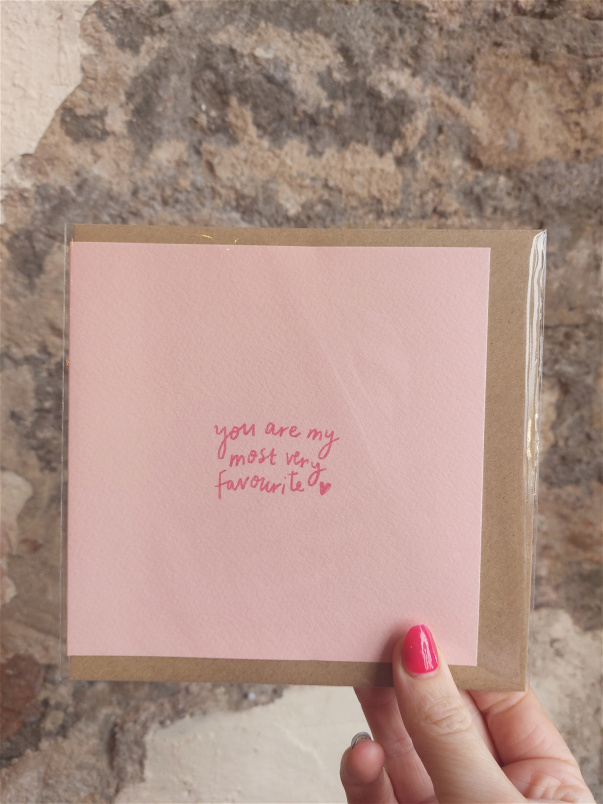 you are my
most very
favourite